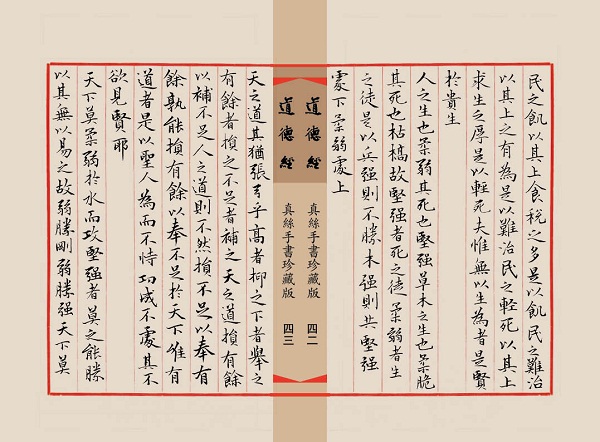 民之飢以其上食稅之多是以飢民之難治
以其上之有為是以難治民之輕死以其上
求生之厚是以輕死夫惟無以生為者是賢
於貴生
人之生也柔弱其死也堅强草木之生也柔脆
其死也枯槁故堅强者死之徒柔弱者生
之徒是以兵强則不勝木强則共堅强
處下柔弱處上
道德經 真絲手書珍藏版 四二
道德經 真絲手書珍藏版 四三
天之道其猶張弓乎高者抑之下者舉之
有餘者損之不足者補之天之道損有餘
以補不足人之道則不然損不足以奉有
餘孰能損有餘以奉不足於天下惟有
道者是以聖人為而不恃功成不處其不
欲見賢耶
天下莫柔弱於水而攻堅强者莫之能勝
以其無以易之故弱勝剛弱勝强天下莫